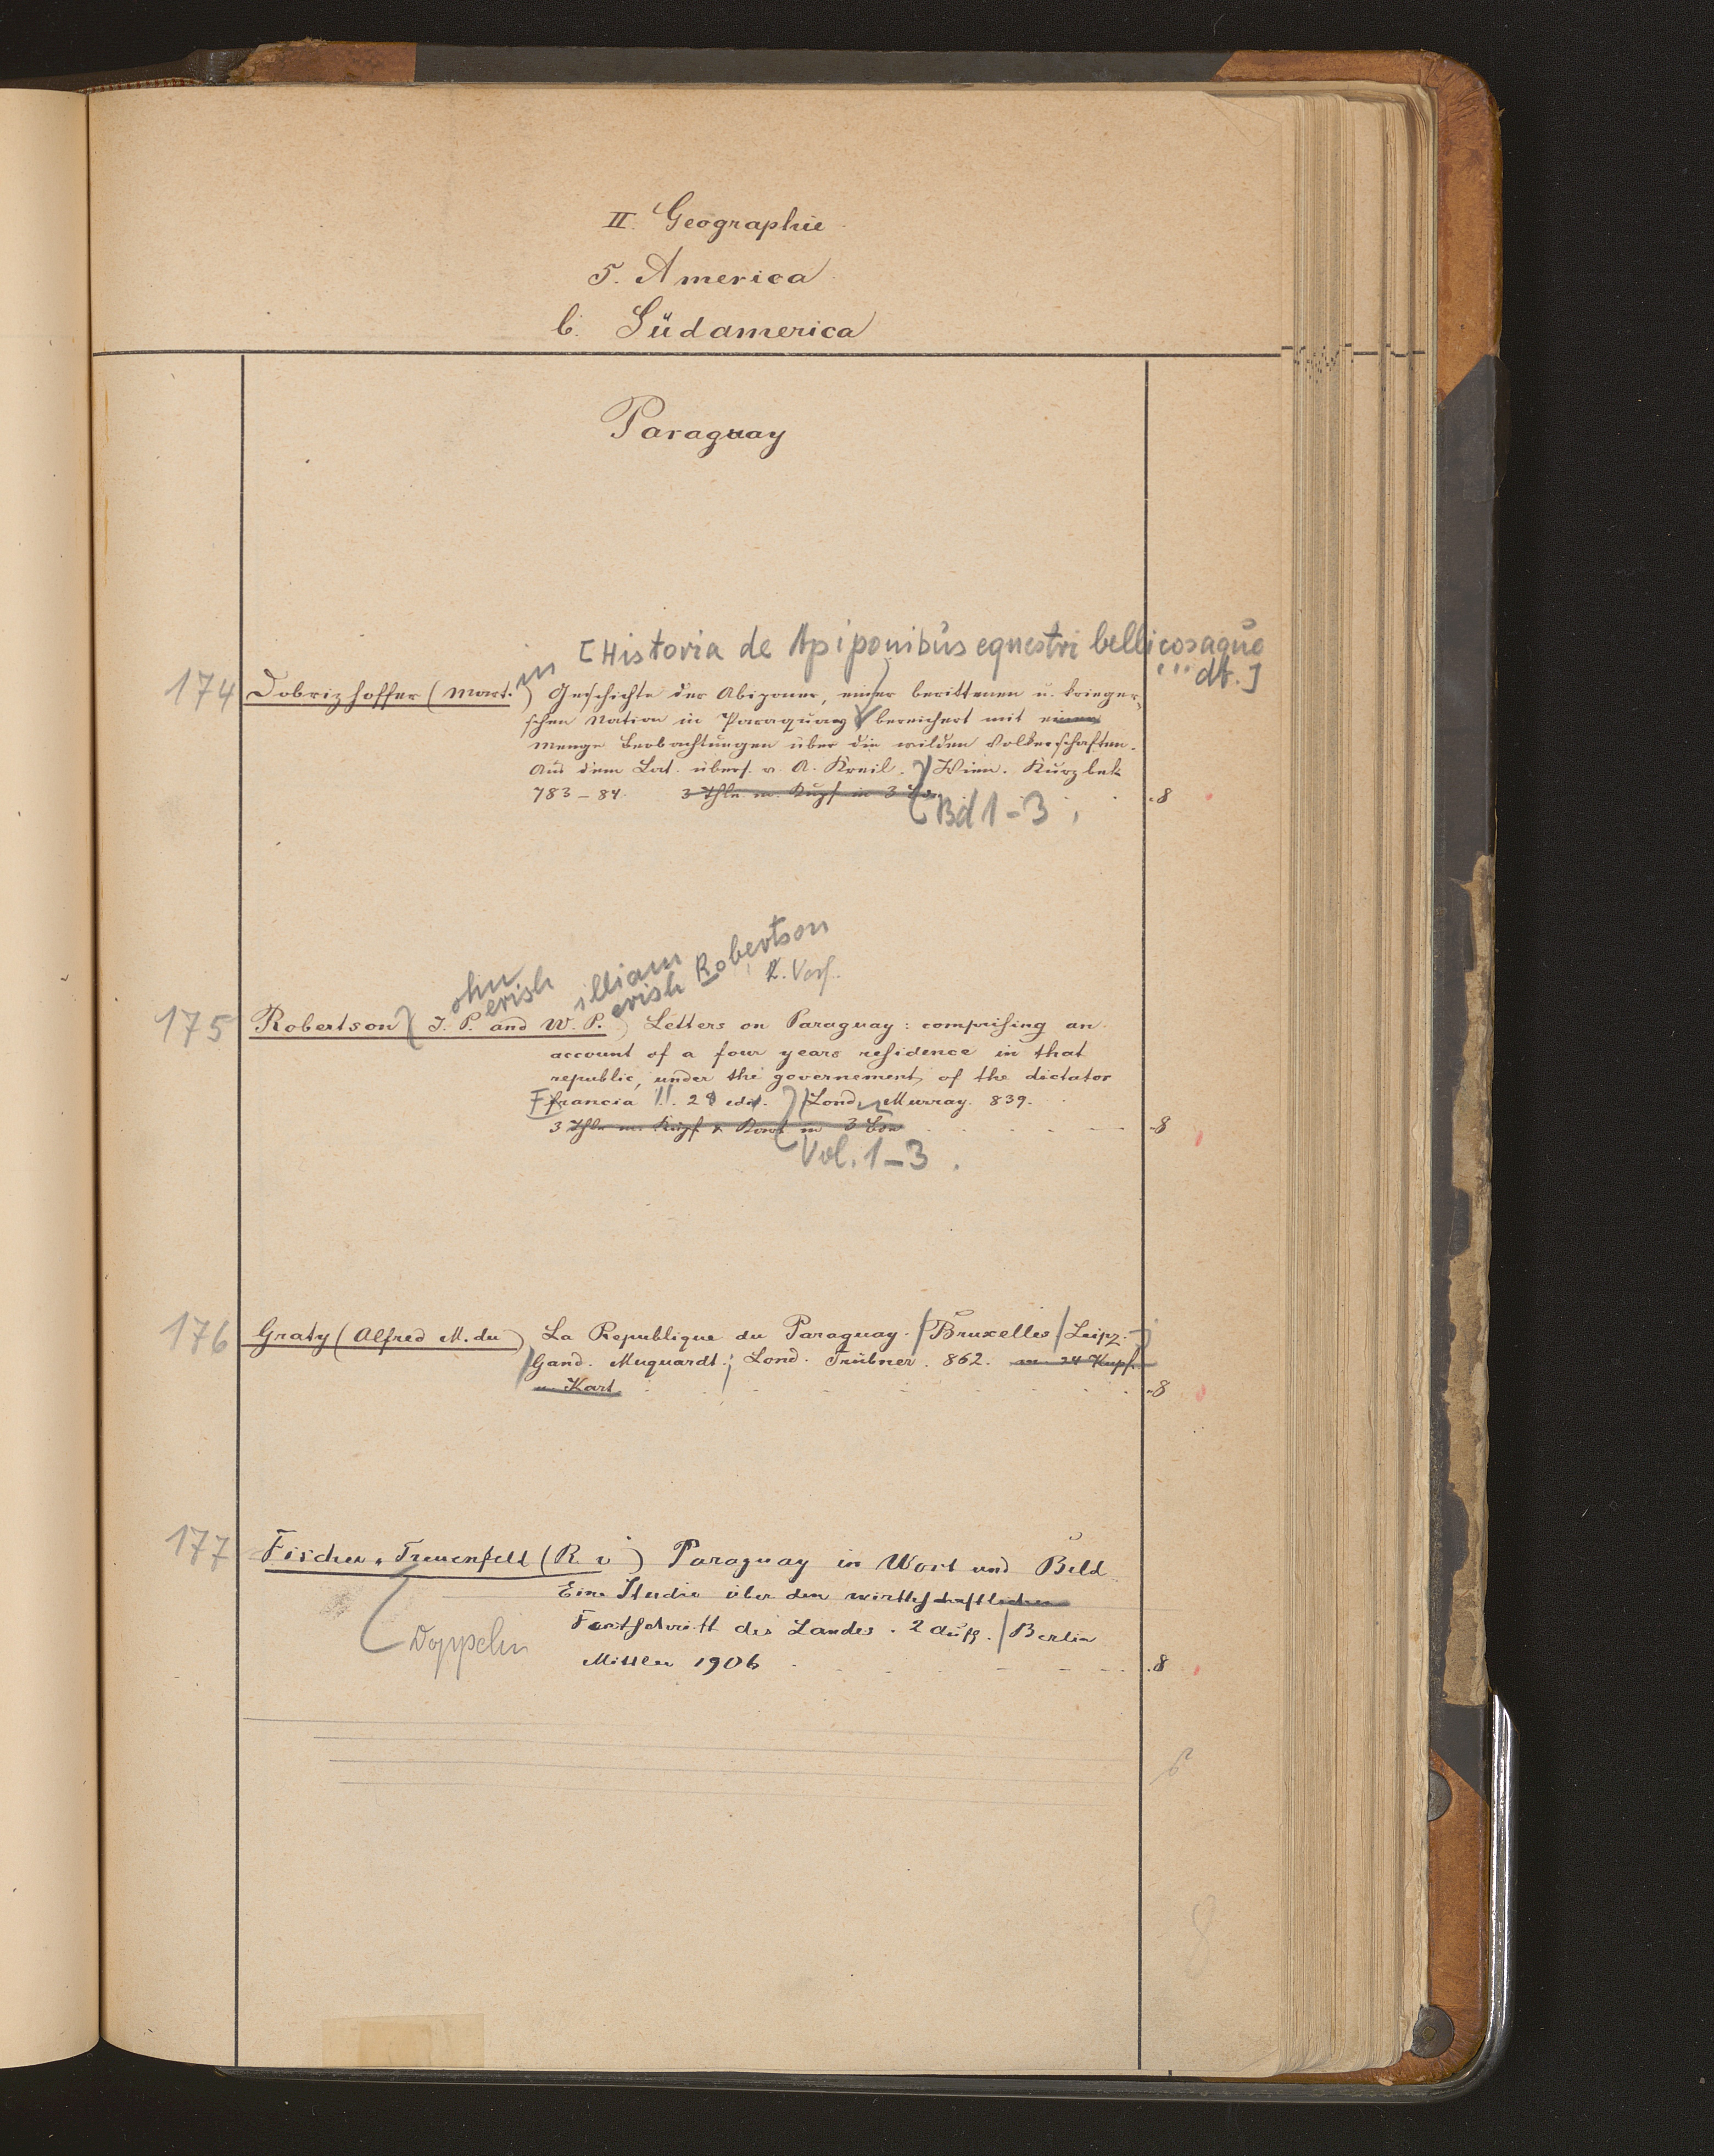 II. Geographie
5. America
b. Südamerica
Paraguay
[Historia de Apiponibus equestri bellicosaque
... dt.]
174 Dobrizhoffer (Mart.in) Geschichte der Abiponer, einer berittenen u. krieger-
schen Nation in Paraquay bereichert mit einer
Menge Beobachtungen über die wilden Völkerschaften.
Aus dem Lat. übers. v. A. Kreil. Wien. Kurzbek
783-84. 3 Thle. m. Kupf in 3 Bde 8
Bd 1-3.
ohn illiam
erish erish Robertson
2. Verf.
175 Robertson (J. P. and W. P.) Letters on Paraguay: comprising an
account of a four years residence in that
republic, under the governement, of the dictator
Francia!!. 2d edit. Lond. Murray. 839.
3 Thle m. Kupf u. Kart in 3 Bde 8
Vol. 1-3.
176 Graty (Alfred M. du) La Republique du Paraguay. / Bruxelles / Leipz.
Gand. Muquardt.; Lond. Trübner. 862. m. 24 Kupf.
u. Kart. 8
177 Fischer-Treuenfeld (R. v) Paraguay in Wort und Bild
Eine Studie über den wirthschaftlichen
Fortschritt des Landes. 2 Aufl. / Berlin
Doppeln
Mittler 1906 8
8